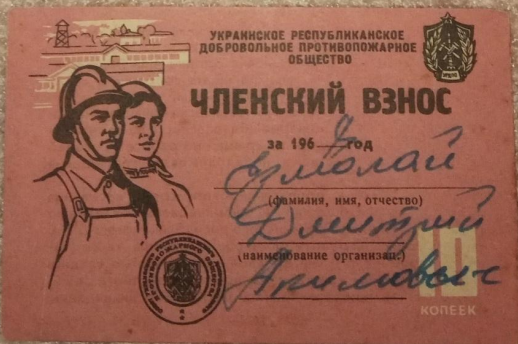 УКРАИНСКОЕ РЕСПУБЛИКАНСКОЕ
ДОБРОВОЛЬНОЕ ПРОТИВОПОЖАРНОЕ
ОБЩЕСТВО
ЧЛЕНСКИЙ ВЗНОС
за 196 год
(фамилия, имя, отчество)
Дмитрий
(наименование организац.)
10
КОПЕЕК